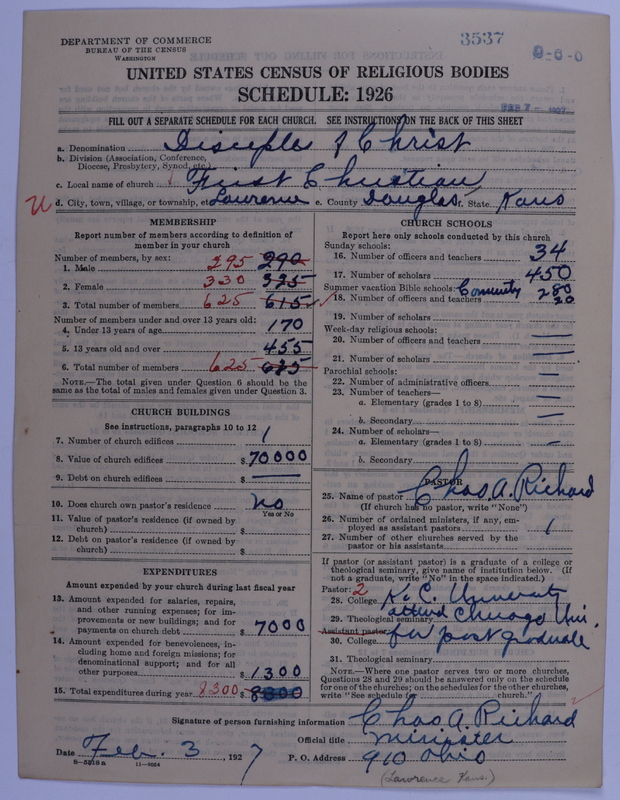 DEPARTMENT OF COMMERCE
BUREAU OF THE CENSUS
WASHINGTON
3537
9-6-0
UNITED STATES CENSUS OF RELIGIOUS BODIES
SCHEDULE: 1926
FEB 7 - 1927
FILL OUT A SEPARATE SCHEDULE FOR EACH CHURCH. SEE INSTRUCTIONS ON THE BACK OF THIS SHEET
a. Denomination Disciple of Christ
b. Division (Association, Conference,
Diocese, Presbytery, Synod, etc.)
c. Local name of church First Christian
d. City, town, village, or township, etc. Lawrence e. County Douglas f. State Kans
MEMBERSHIP
Report number of members according to definition of
member in your church
Number of members, by sex:
1. Male 295 290
2. Female 330 325
3. Total number of members 625 615
Number of members under and over 13 years old:
4. Under 13 years of age 170
5. 13 years old and over 455
6. Total number of members 625 675
NOTE.—The total given under Question 6 should be the
same as the total of males and females given under Question 3.
CHURCH BUILDINGS
See instructions, paragraphs 10 to 12
7. Number of church edifices 1
8. Value of church edifices $ 70000
9. Debt on church edifices $ —
10. Does church own pastor's residence No
Yes or No
11. Value of pastor's residence (if owned by
church) $
12. Debt on pastor's residence (if owned by
church) $
EXPENDITURES
Amount expended by your church during last fiscal year
13. Amount expended for salaries, repairs,
and other running expenses; for im-
provements or new buildings; and for
payments on church debt $ 7000
14. Amount expended for benevolences, in-
cluding home and foreign missions; for
denominational support; and for all
other purposes $ 1300
15. Total expenditures during year 8300 $ 8300
CHURCH SCHOOLS
Report here only schools conducted by this church
Sunday schools:
16. Number of officers and teachers 34
17. Number of scholars 450
Summer vacation Bible schools: Community 280
18. Number of officers and teachers 20
19. Number of scholars
Week-day religious schools:
20. Number of officers and teachers —
21. Number of scholars —
Parochial schools:
22. Number of administrative officers —
23. Number of teachers—
a. Elementary (grades 1 to 8) —
b. Secondary —
24. Number of scholars—
a. Elementary (grades 1 to 8) —
b. Secondary
PASTOR
25. Name of pastor Chas A. Richard
(If church has no pastor, write "None")
26. Number of ordained ministers, if any, em-
ployed as assistant pastors 1
27. Number of other churches served by the
pastor or his assistants
If pastor (or assistant pastor) is a graduate of a college or
theological seminary, give name of institution below. (If
not a graduate, write "No" in the space indicated.)
Pastor: 2
28. College K. C. University
29. Theological seminary attend Chicago Uni.
Assistant pastor for post graduate
30. College
31. Theological seminary
NOTE.—Where one pastor serves two or more churches,
Questions 28 and 29 should be answered only on the schedule
for one of the churches; on the schedules for the other churches,
write "See schedule for church."
Signature of person furnishing information Chas A. Richard
Official title Minister
Date Feb. 3, 1927 P. O. Address 910 Ohio
(Lawrence Kans.)
8-5518a 11-9064